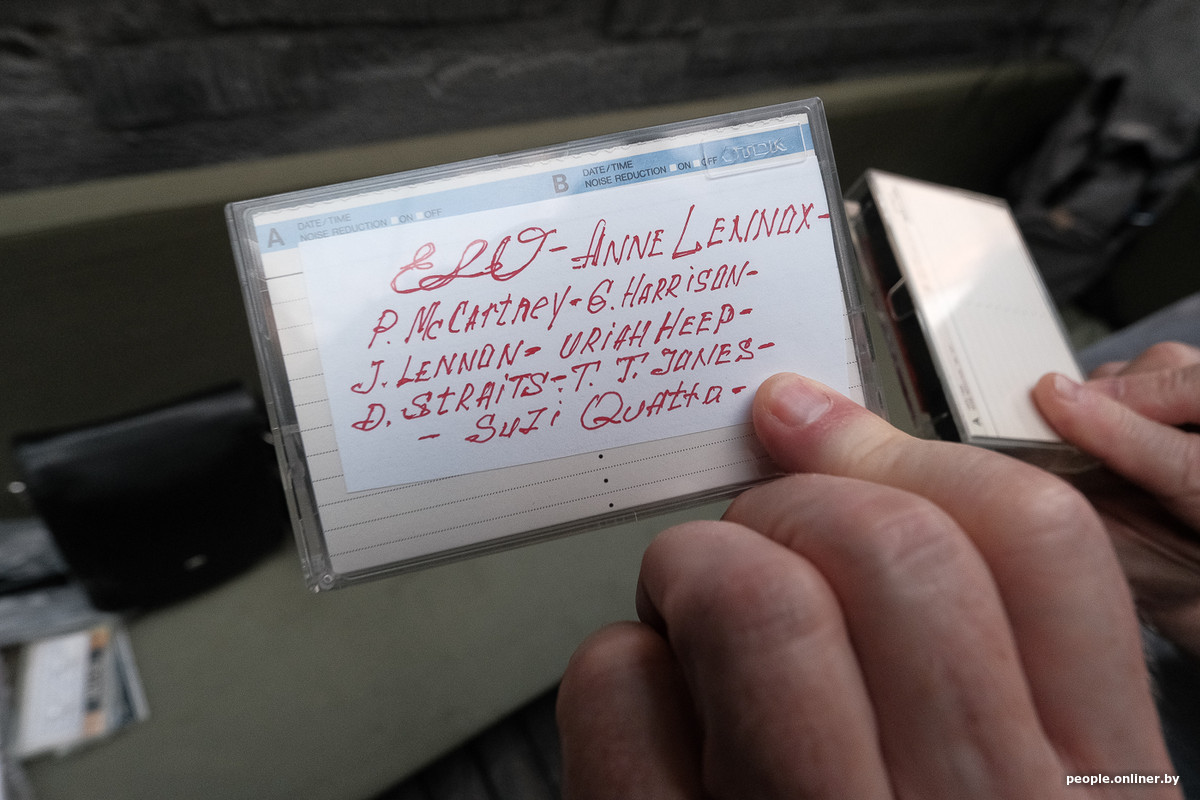 A DATE/TIME NOISE REDUCTION ON OFF
B DATE/TIME NOISE REDUCTION ON OFF TDK
ELO - ANNE LENNOX -
P. McCARTNEY - G. HARRISON -
J. LENNON - URIAH HEEP -
D. STRAITS - T. T. JONES -
- SUZI QUATTO -
A
people.onliner.by